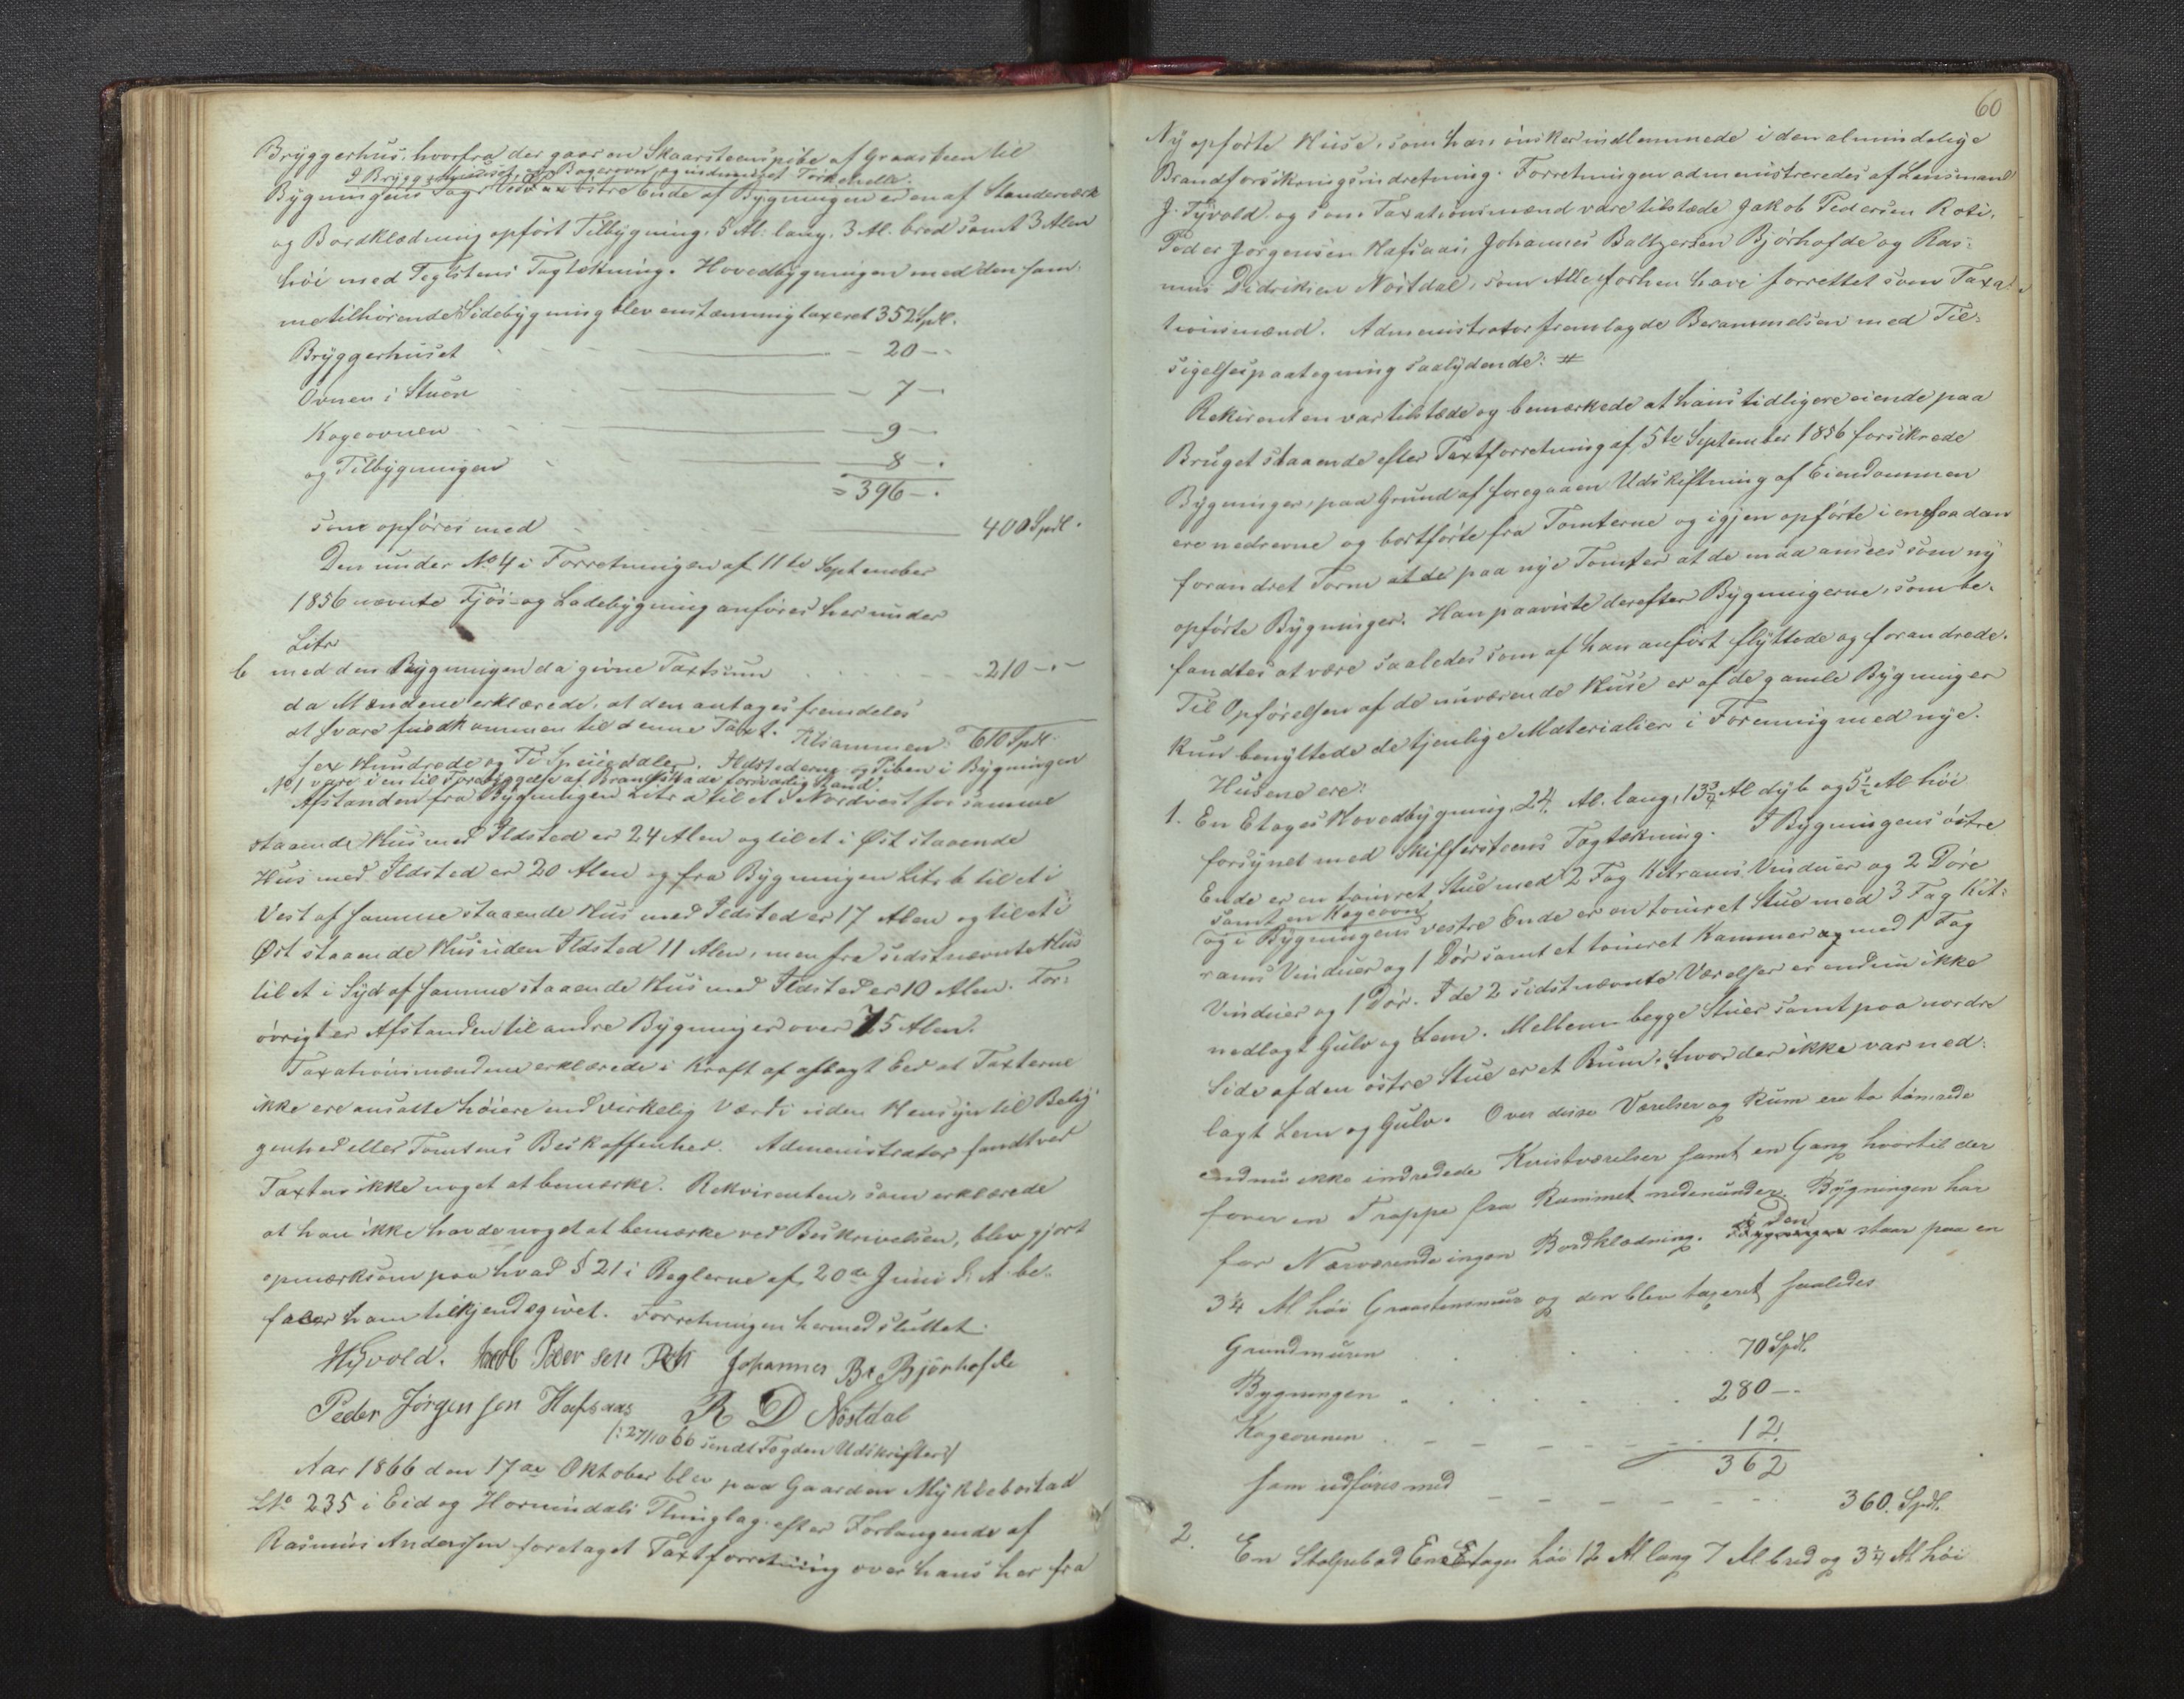 Bryggerhus, hvorfra der gaar en Skaarsteenspibe af Graasteen til
I Bryggerhuset, er Bagerovn og indmuret Tørkehelle.
Bygningens Tag. Ved østre Ende af Bygningen er en af Standerværk
og Bordklædning opført Tilbygning, 5 Al: lang, 3 Al. bred samt 3 Alen
høi med Teglstens Tagtækning. Hovedbygningen med den sam-
me tilhørende Sidebygning blev enstæmmig taxeret 352 Spd.
Bryggerhuset 20 —
Ovnen i Stuen 7 —
Kogeovnen 9 —
og Tilbygningen 8 —.
= 396 —.
som opføres med 400 Spd.
Den under No 4 i Forretningen af 11te September
1856 nævnte Fjøs- og Ladebygning anføres her under
Litr
b med den Bygningen da givne Taxtsum 210 —
da Mændene erklærede, at den antages fremdeles
at svare fuldkommen til denne Taxt. Tilsammen: 610 Spd.
sex Hundrede og Ti Speciedaler. Ildstederne og Piben i Bygningen
No 1 vare i en til Forebyggelse af Brandskade forsvarlig Stand.
Afstanden fra Bygningen Litr a til et i Nordvest for samme
staaende Hus med Ildsted er 24 Alen og til et i Øst staaende
Hus med Ildsted er 20 Alen og fra Bygningen Litr b til et i
Vest af samme staaende Hus med Ildsted er 17 Alen og til et i
Øst staaende Hus uden Ildsted 11 Alen, men fra sidstnævnte Hus
til et i Syd af samme staaende Hus med Ildsted er 10 Alen. For-
øvrigt er Afstanden til andre Bygninger over 75 Alen.
Taxationsmændene erklærede i Kraft af aflagt Eed at Taxterne
ikke ere ansatte høiere end virkelig Værdi uden Hensyn til Belig-
genhed eller Tomtens Beskaffenhed. Administrator fandt ved
Taxten ikke noget at bemærke. Rekvirenten, som erklærede
at han ikke havde noget at bemærke ved Beskrivelsen, blev gjort
opmærksom paa hvad § 21 i Reglerne af 20de Juni d. A. be-
faler ham tilkjendegivet. Forretningen hermed sluttet.
Jacob Peder sen Johannes B. Bjørhofde
Peder Jørgensen Hafsaas R D Nøstdal
/: 27/10 66 sendt Fogden Udskrifter :/
Aar 1866 den 17de Oktober blev paa Gaarden Myklebostad
235 i Eid og Hornindals Thinglag efter Forlangende af
Rasmus Anderssen foretaget Taxtforretning over hans her fra
60
Ny opførte Huse, som han ønsker indlemmede i den almindelige
Brandforsikringsindretning. Forretningen administreredes af Lensmand
J. Tyvold og som Taxationsmænd vare tilstæde Jakob Pedersen Roti,
Peder Jørgensen Hafsaas, Johannes Baltzersen Bjørhofde og Ras-
mus Didriksen Nøstdal, som Alle forhen have forrettet som Taxa-
tionsmænd. Administrator fremlagde Berammelsen med Til-
sigelsespaategning saalydende: #
Rekirenten var tilstæde og bemærkede at hans tidligere eiende paa
Bruget staaende efter Taxtforretning af 5te September 1856 forsikrede
Bygninger, paa Grund af foregaaen Udskiftning af Eiendommen
ere nedrevne og bortførte fra Tomterne og igjen opførte i en saadan
forandret Form at de paa nye Tomter at de maa ansees som ny
opførte Bygninger. Han paaviste derefter Bygningerne, som be-
fandtes at være saaledes som af han anført flyttede og forandrede.
Til Opførelsen af de nuværende Huse er af de gamle Bygninger
kun benyttede de tjenlige Materialier i Forening med nye.
Husene ere:
1. En Etages Hovedbygning, 24 Al. lang, 13 3/4 Al dyb og 5 1/2 Al høi
forsynet med Skiffersteens Tagtækning. I Bygningens østre
Ende er en tømret Stue med 2 Fag Kitrams Vinduer og 2 Døre
samt en Kogeovn
og i Bygningens vestre Ende er en tømret Stue med 3 Fag Kit-
rams Vinduer og 1 Dør samt et tømret Kammer og med 1 Fag
Vinduer og 1 Dør. I de 2 sidstnævnte Værelser er endnu ikke
nedlagt Gulv og Lem. Mellem begge Stuer samt paa nordre
Side af den østre Stue er et Rum, hvor der ikke var ned-
lagt Lem og Gulv. Over disse Værelser og Rum ere to tømrede
endnu ikke indredede Kvistværelser samt en Gang hvortil der
fører en Trappe fra Rummet nedenunder. Bygningen har
for Nærværende ingen Bordklædning. Den staar paa en
3 1/4 Al høi Graastensmur og den blev taxeret saaledes
Grundmuren 70 Spd.
Bygningen 280 —
Kogeovnen 12.
362
som udføres med 360. Spd.
2. En Stolpebod Een Etages høi 12 Al lang 7 Al bred og 3 1/4 Al høi